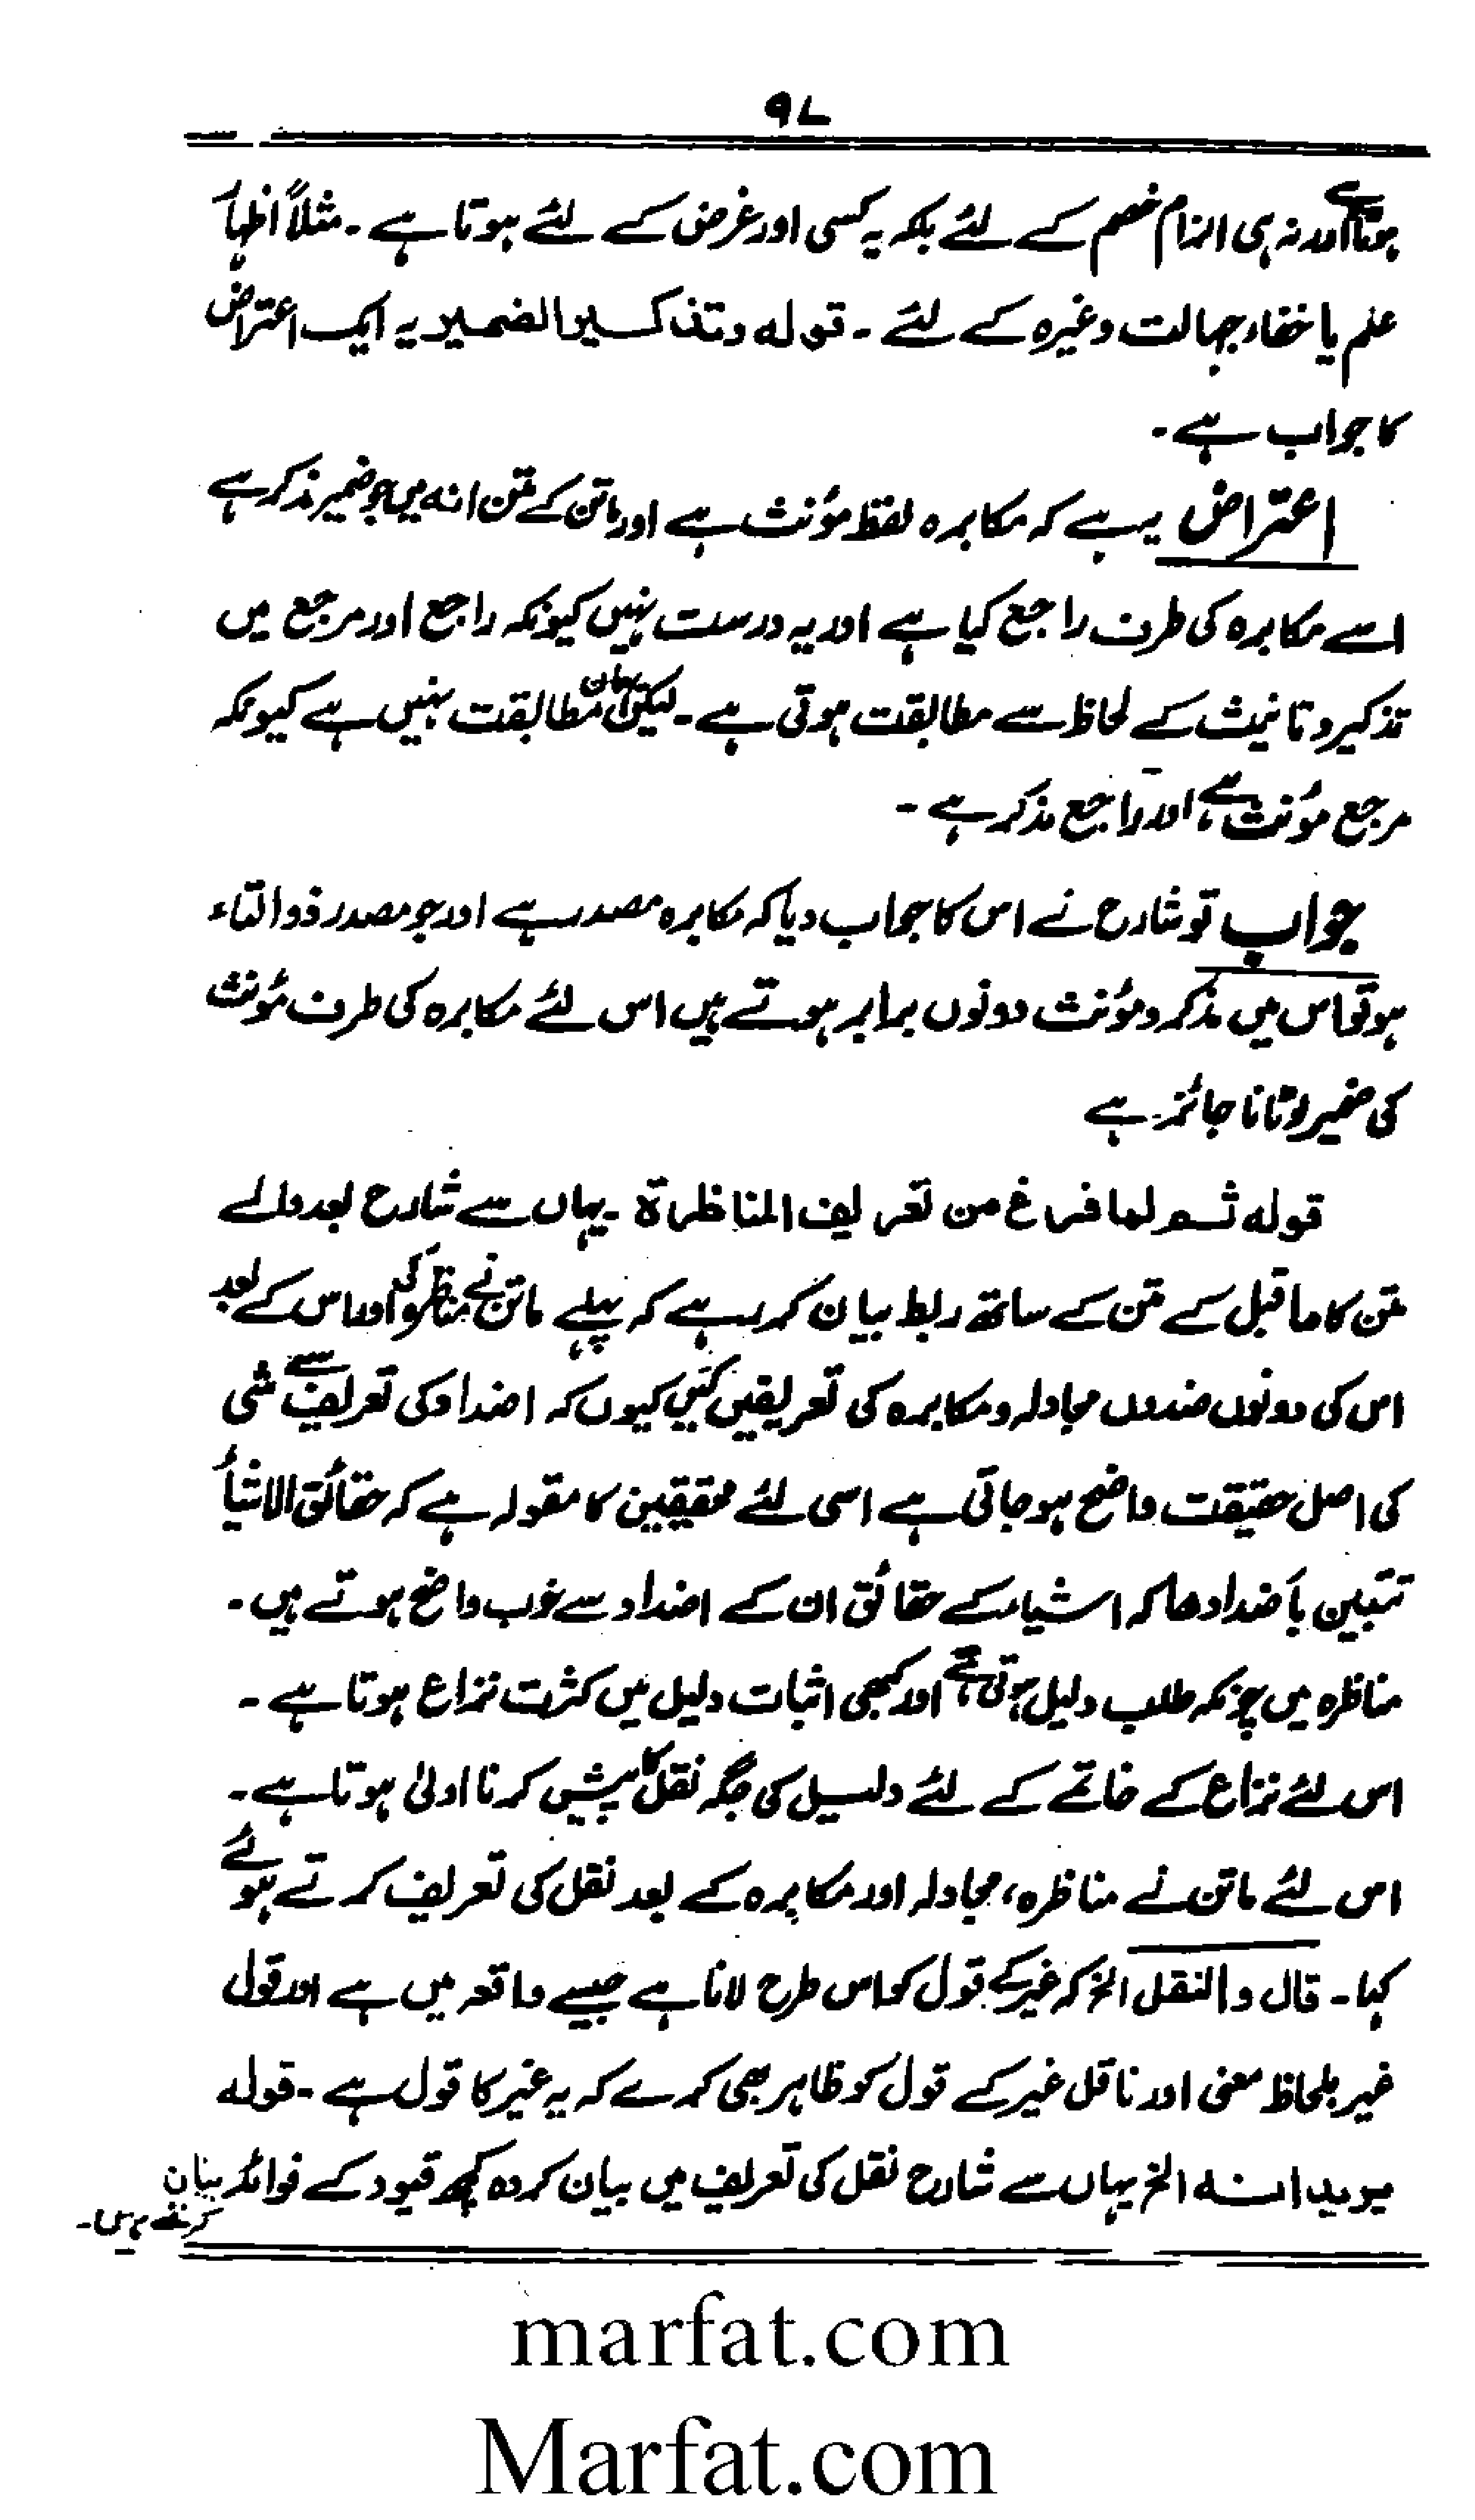 ۹۷
ہوتا ہے اور نہ ہی الزام خصم کے لئے بلکہ یہ کسی اور غرض کے لئے ہوتا ہے۔ مثلاً اظہار
علم یا خفاء جہالت وغیرہ کے لئے۔ قولہ وتذکیر الضمیر یہ ایک اعتراض
کا جواب ہے۔
اعتراض یہ ہے کہ مکابرہ لفظ مؤنث ہے اور ماتن کے متن انہ میں جو ضمیر مذکر ہے
اسے مکابرہ کی طرف راجع کیا ہے اور یہ درست نہیں کیونکہ راجع اور مرجع میں
تذکیر و تانیث کے لحاظ سے مطابقت ہوتی ہے۔ لیکن یہاں مطابقت نہیں ہے کیونکہ
مرجع مؤنث ہے اور راجع مذکر ہے۔
جواب تو شارح نے اس کا جواب دیا کہ مکابرہ مصدر ہے اور جو مصدر ذوالتاء
ہو تو اس میں مذکر و مؤنث دونوں برابر ہوتے ہیں اس لئے مکابرہ کی طرف مؤنث
کی ضمیر لوٹانا جائز ہے
قولہ ثم لما فرغ من تعریف المناظرۃ۔ یہاں سے شارح بعد والے
متن کا ماقبل کے متن کے ساتھ ربط بیان کر رہے کہ پہلے ماتن نے مناظرہ کی اور اس کے بعد
اس کی دونوں ضدوں مجادلہ و مکابرہ کی تعریفیں کیں کیوں کہ اضداد کی تعریف سے شی
کی اصل حقیقت واضح ہو جاتی ہے اسی لئے محققین کا مقولہ ہے کہ حقائق الاشیأ
تتبین بأضدادھا کہ اشیاء کے حقائق ان کے اضداد سے خوب واضح ہوتے ہیں۔
مناظرہ میں چونکہ طلب دلیل ہوتی ہے اور کبھی اثبات دلیل میں کثرت نزاع ہوتا ہے۔
اس لئے نزاع کے خاتمے کے لئے دلیل کی جگہ نقل کا پیش کرنا اولیٰ ہوتا ہے۔
اس لئے ماتن نے مناظرہ، مجادلہ اور مکابرہ کے بعد نقل کی تعریف کرتے ہوئے
کہا۔ قال والنقل الخ کہ غیر کے قول کو اس طرح لانا ہے جیسے واقعہ میں ہے اور قول
غیر بلحاظ معنی اور ناقل غیر کے قول کو ظاہر بھی کرے کہ یہ غیر کا قول ہے۔ قولہ
یرید انہ الخ یہاں سے شارح نقل کی تعریف میں بیان کردہ کچھ قیود کے فوائد بیان
کرتے ہیں۔
marfat.com
Marfat.com